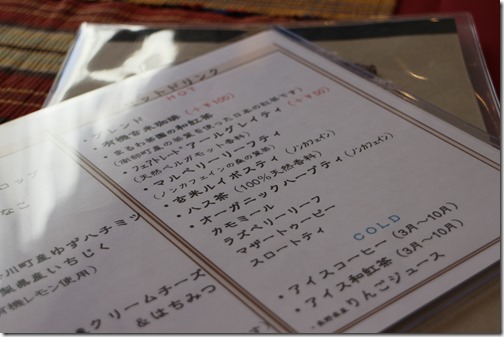 ットドリンク
HOT
・ブレンド
・有機玄米珈琲 (+¥100)
・まるわ茶園の和紅茶
(南部町産の茶葉を使った日本の紅茶です)
・フェアトレード アールグレイティ (+¥50)
(天然ベルガモット香料)
・マルベリーリーフティ
(ノンカフェインの桑の葉茶)
・玄米ルイボスティ (ノンカフェイン)
・ハス茶 (100%天然香料)
・オーガニックハーブティ (ノンカフェイン)
カモミール
ラズベリーリーフ
マザートゥービー
スロートティ
COLD
・アイスコーヒー (3月～10月)
・アイス和紅茶 (3月～10月)
・長野県産りんごジュース
ロップ
なこ
川町産ゆずハチミッ
梨県産いちじく
有機レモン使用)
クリームチーズ
&はちみつ